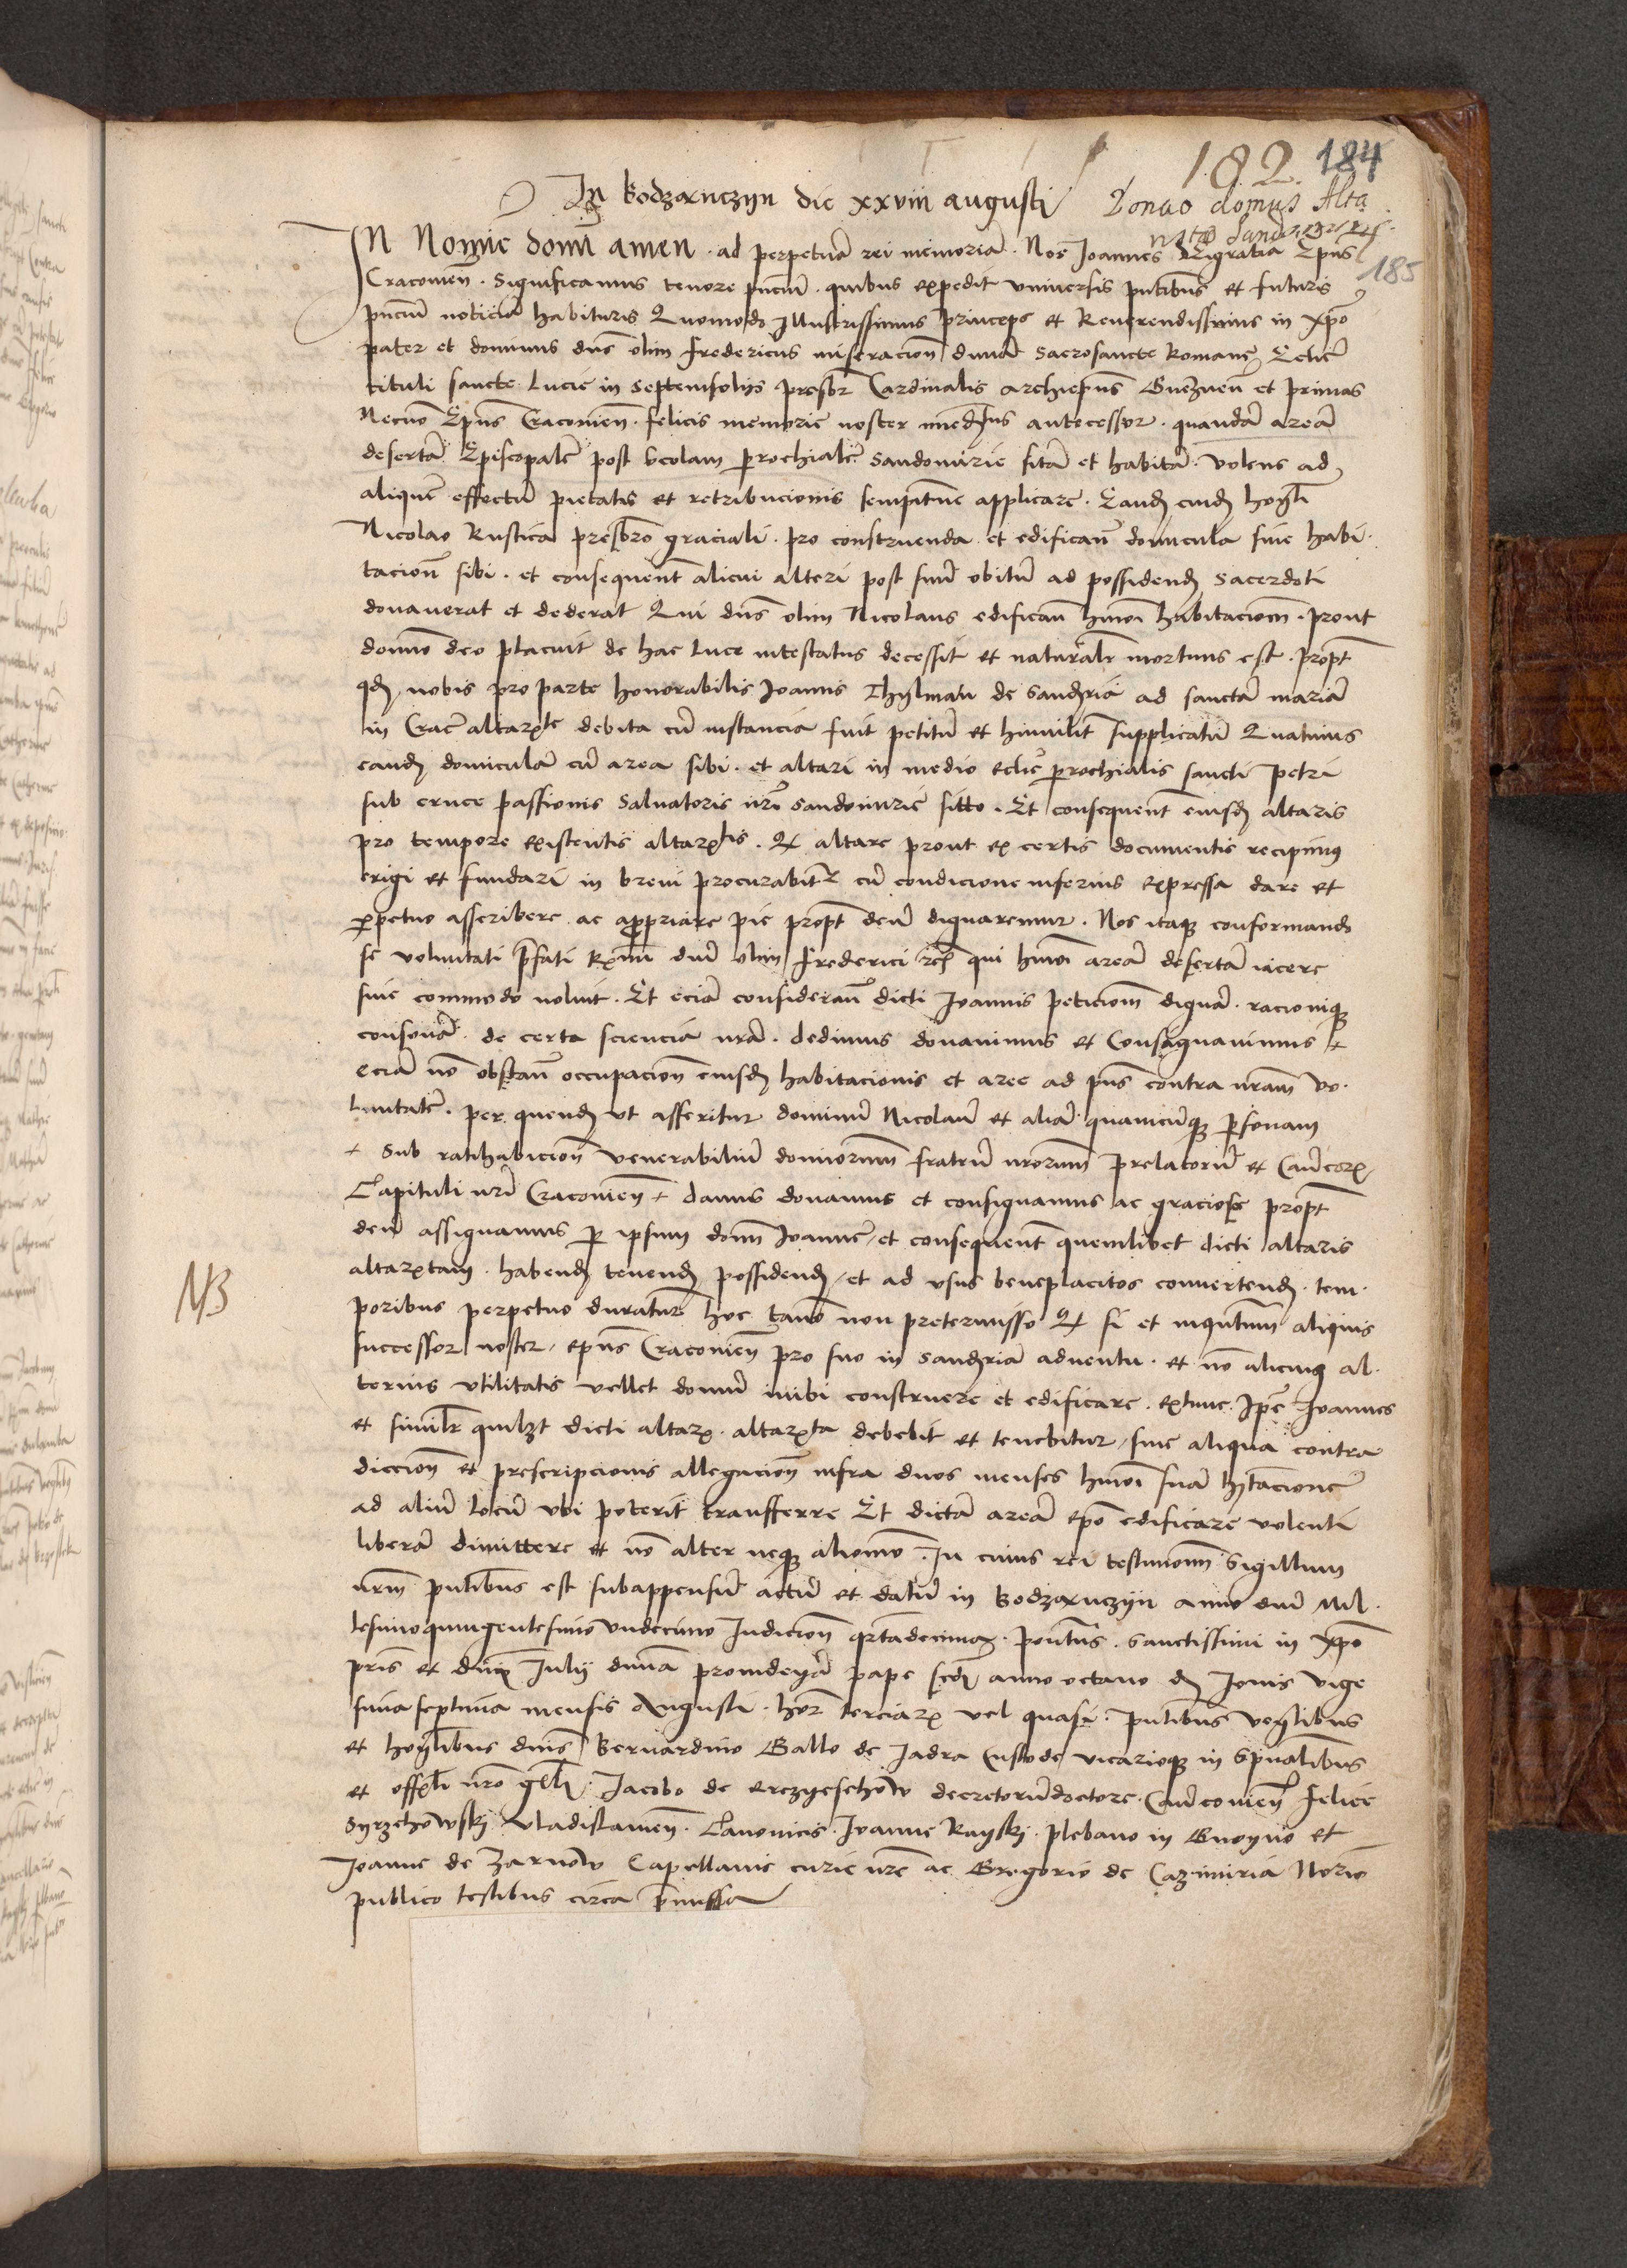 182 184
In Bodzanczyn die xxviii augusti
Donao domus Alta
185
IN Nomie domi amen . ad perpetuā rei memoriā . Nos Joannes Dei gratia Epus
Cracovien̄ . Significamus tenore pn̄ciū . quibus expedit universis pn̄tibus et futuris
pn̄ciū noticiā habituris Quomodo Illustrissimus princeps et Reverendissimus in xpō
pater et dominus dn̄s olim Fredericus miseracion̄ divinā Sacrosancte Romane Eccliē
tituli sancte Lucie in Septemsolijs presbr̄ Cardinalis archiepūs Gneznen̄ et primas
Necno Epūs Cracovien̄ . felicis memorie noster imed̄tus antecessor . quandā areā
desertā Episcopalē post scolam prochialē Sandomirie sitā et habitā . volens ad
aliquē effectū pietatis et retribucionis sempit̄ne applicare . Eand̄ eid̄ hon̄li
Nicolao Rustica presbrō graciali . pro construenda et edifican̄ domicula sive habi
tacion̄ sibi . et consequent̄ alicui alteri post suū obitū ad possidend̄ sacerdoti
donaverat et dederat Qui dn̄s olim Nicolaus edifican̄ hmōi habitacionē . prout
domīo deo placuit de hac luce intestatus decessit et naturalr̄ mortuus est . propt̄
qd̄ nobis pro parte honorabilis Joannis Thylman de Sand̄ria ad sanctā mariā
in Crac̄ altar̄te debita cū instancia fuit petitū et humilit̄ supplicatū Quatinus
eand̄ domiculā cū area sibi . et altari in medio ecliē prochialis sancti petri
sub cruce passionis Salvatoris nr̄i Sandomirie sitto . Et consequent̄ eiusd̄ altaris
pro tempore existentis altar̄tis . Qd̄ altare prout ex certis documentis recipimus
erigi et fundari in brevi procurabit̄r cū condicione inferius expressa dare et
perpetuo asscribere ac appropriare pie propt̄ deū dignaremur . Nos itaqz conformand̄
se voluntati p̄fati R̄mi dn̄i olim Frederici rc̄ qui hmōi areā desertā iacere
sine commodo noluit . Et eciā consideran̄ dicti Joannis peticionē dignā . racionique
consonā . de certa sciencia nrā . dedimus donavimus et Consignavimus +
eciā nō obstan̄ occupacion̄ eiusd̄ habitacionis et aree ad pn̄s contra nrām vo
luntatē . per quend̄ ut asseritur dominū Nicolaū et aliā quamcūqz p̄sonam
+ Sub ratihabicion̄ venerabiliū dominorum fratrū nrorum prelatorū et Can̄icor̄
Capituli nrī Cracovien̄ + damus donamus et consignamus ac graciose propt̄
deū assignamus p̄ ipsum domn̄ Joannē et consequent̄ quemlibet dicti altaris
altar̄tam . habend̄ tenend̄ possidend̄ et ad usus beneplacitos convertend̄ . tem
NB
poribus perpetuo duratur̄ hoc tamē non pretermisso Qd̄ si et inqn̄tum aliquis
successor noster epūs Cracovien̄ pro suo in Sand̄ria adventu . et nō alicuiq al
terius utilitatis vellet domū inibi construere et edificare . extunc Ipē Joannes
et similr̄ quilzt dicti altar̄ . altar̄ta debebit et tenebitur sine aliqua contra
diccion̄ et prescripcionis allegacion̄ infra duos menses hmōi suā hītacionē
ad aliū locū ubi poterit transferre Et dictā areā epō edificare volenti
liberā dimittere et nō alter neqz aliomō . In cuius rei testimoniū Sigillum
nrm pn̄tibus est subappensū actū et datū in Bodzanczyn anno dn̄i Mil
lesimoquingentesimo undecimo Indicion̄ qrtadecima . pontūs . Sanctissimi in xpō
pris et dn̄i Julij divina providen̄ā pape scd̄i anno octavo d̄ Jovis vige
sima septima mensis Augusti . hor̄ terciar̄ vel quasi . pn̄tibus ven̄libus
et hon̄libus dn̄is Bernardino Gallo de Jadra Custode vicarioqz in spn̄alibus
et offīli nrō gn̄li . Jacobo de Erczyeschow decretorūdoctore . Can̄ Covien̄ Felice
Syrzchowski Vladislavien̄ . Canonicis . Joanne Rayski plebano in Gnoyno et
Joanne de Zarnow Capellanis curie nr̄e ac Gregorio de Cazimiria Nōrio
publico testibus circa p̄missa